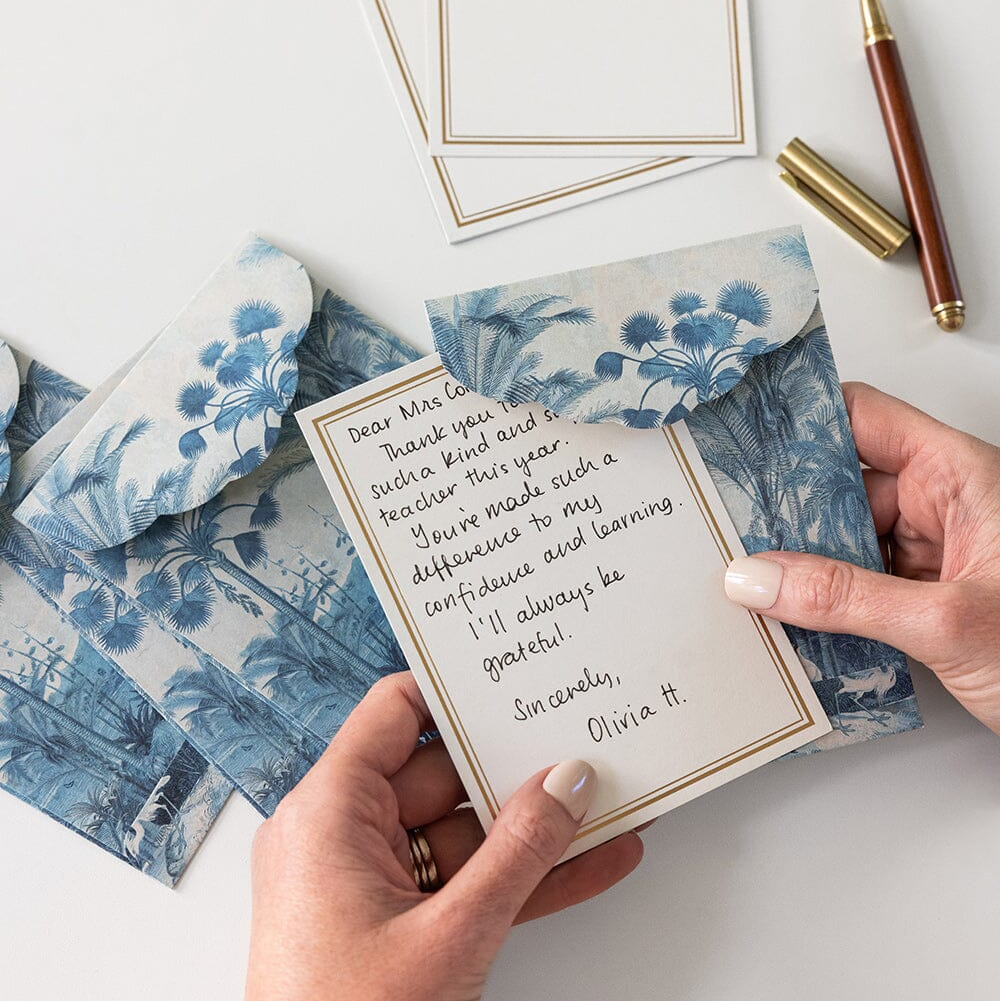 Dear Mrs Co
Thank you fo
such a kind and s
teacher this year.
You've made such a
difference to my
confidence and learning.
I'll always be
grateful.
Sincerely,
Olivia H.